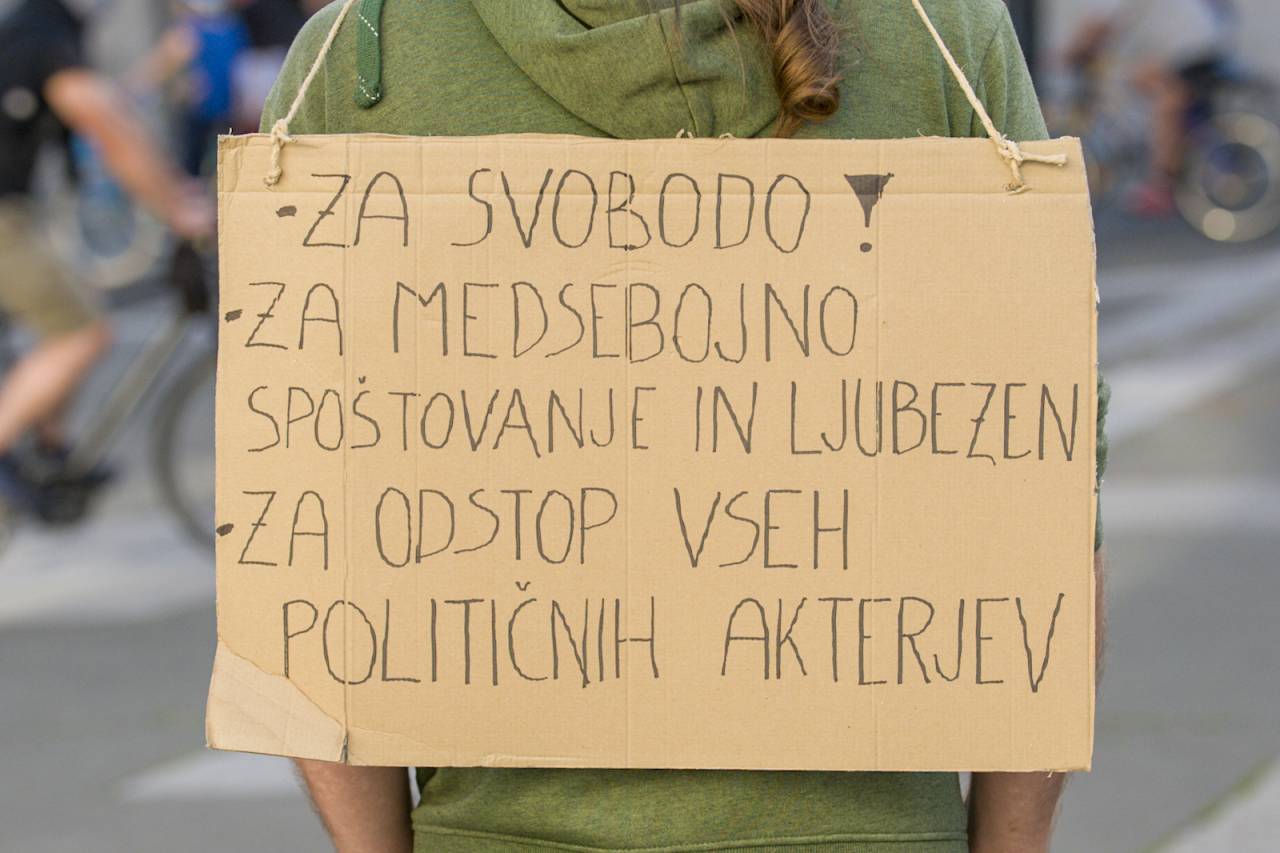 -ZA SVOBODO!
-ZA MEDSEBOJNO
SPOŠTOVANJE IN LJUBEZEN
-ZA ODSTOP VSEH
POLITIČNIH AKTERJEV